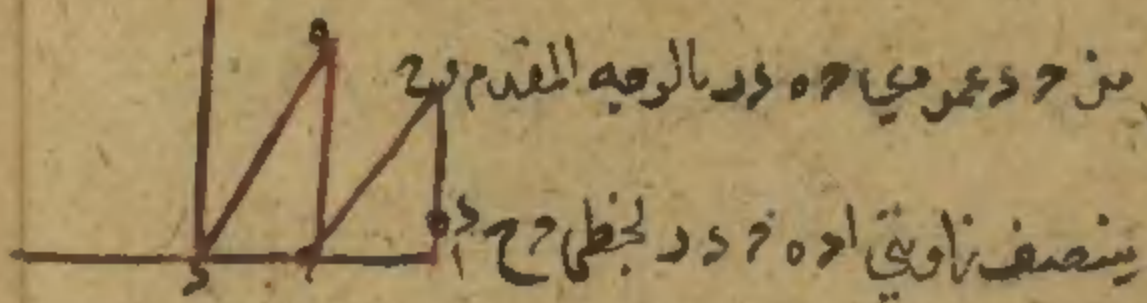 من ح د عمودي ح ه د ر بالوجه المقدم و
ينصف زاويتي ا ح ه ح د ر بخطي ح ح د ه
ه
ح
ا
ح
د